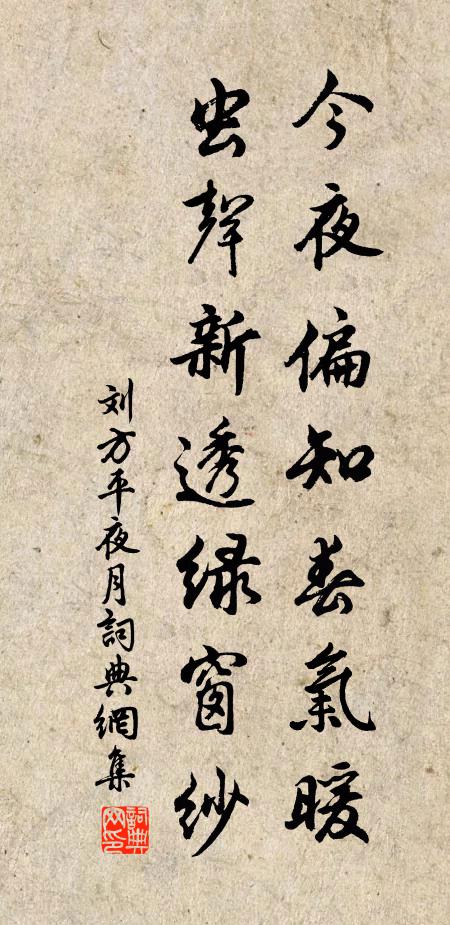 今夜偏知春氣暖
虫聲新透绿窗纱
刘方平夜月詞典網集
詞典網印